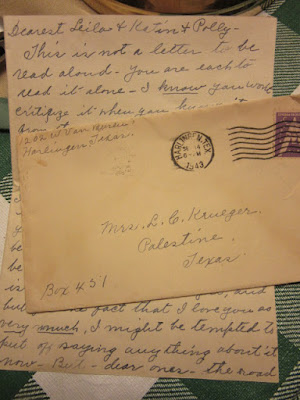 Dearest Leila & Katin & Polly-
This is not a letter to be
read aloud - You are each to
read it alone - I know you won't
critisize it when you
1202 W Van Buren
Harlingen, Texas.
HARLINGEN, TEX.
1943
Mrs. L. C. Krueger.
Palestine,
Texas
Box 451
be
is
but the fact that I love you as
very much, I might be tempted to
put off saying anything about it
now - But - dear ones - the road